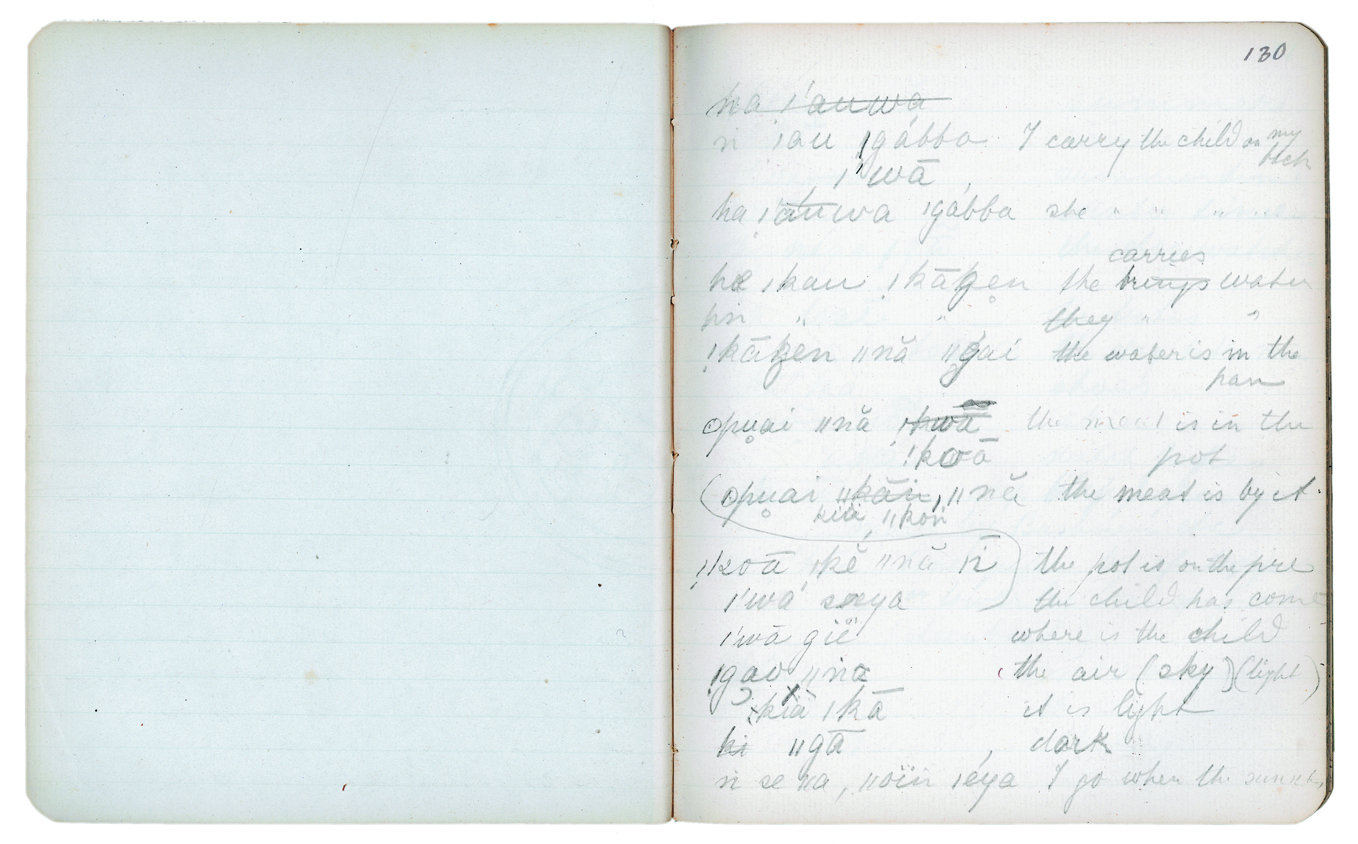 130
ha ǀ'auwa
n ǀau ǃgábba I carry the child on my
back
ǀ'wā
ha ǀauwa ǀgábba she " " "
carries
ha ǀkau ǃkāgen the brings water
hn " " they " "
ǃkāgen ǁnă ǁgai the water is in the
pan
ʘpụai ǁnă ǃkwā the meat is in the
ǃkoā pot
(ʘpụai ǁkāin, ǁnă the meat is by it.
kiä ǁkoń
ǃkoā ǀkĕ ǁnă ī the pot is on the fire
ǀ'wā seya the child has come
ǀ'wā gië where is the child
ǃgao ǁna the air (sky) (light)
kiā ǀkā it is light
ki ǁgā dark
n se ǁa, ǁöïn ǀéya I go when the sun